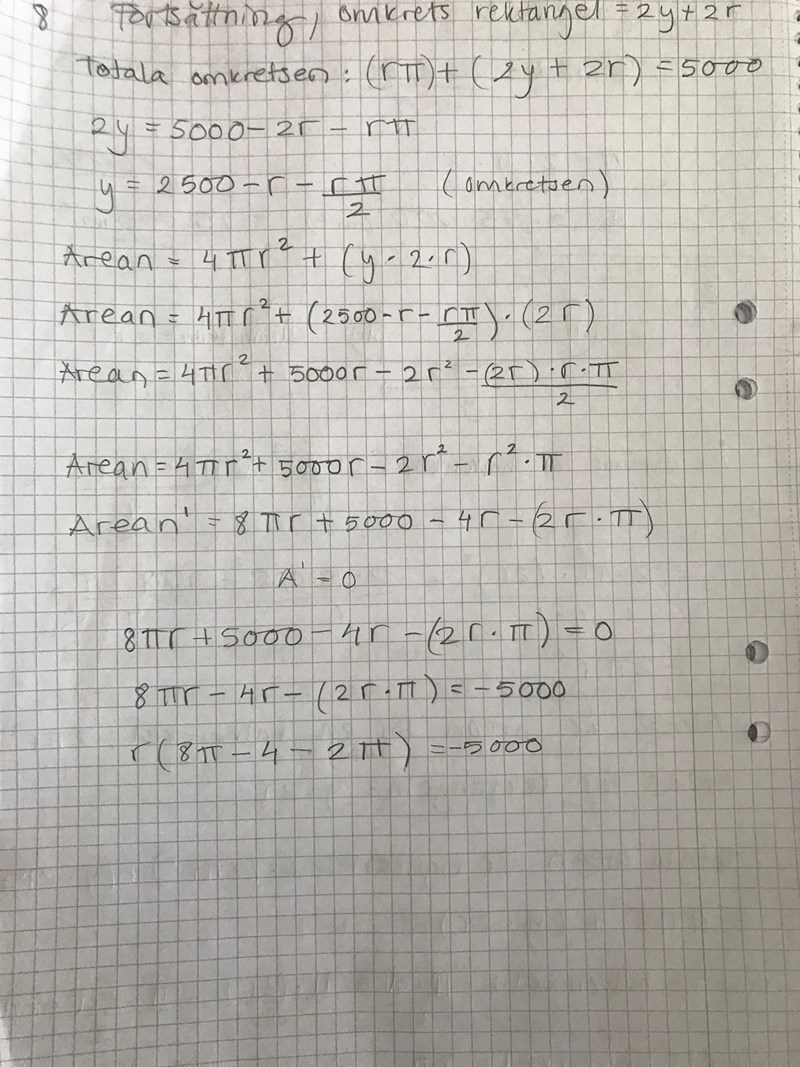 8 Fortsättning, omkrets rektangel = 2y + 2r
Totala omkretsen: (rπ) + (2y + 2r) = 5000
2y = 5000 - 2r - rπ
y = 2500 - r - rπ/2 (omkretsen)
Arean = 4πr² + (y · 2 · r)
Arean = 4πr² + (2500 - r - rπ/2) · (2r)
Arean = 4πr² + 5000r - 2r² - (2r) · r · π/2
Arean = 4πr² + 5000r - 2r² - r² · π
Arean' = 8πr + 5000 - 4r - (2r · π)
A' = 0
8πr + 5000 - 4r - (2r · π) = 0
8πr - 4r - (2r · π) = -5000
r(8π - 4 - 2π) = -5000